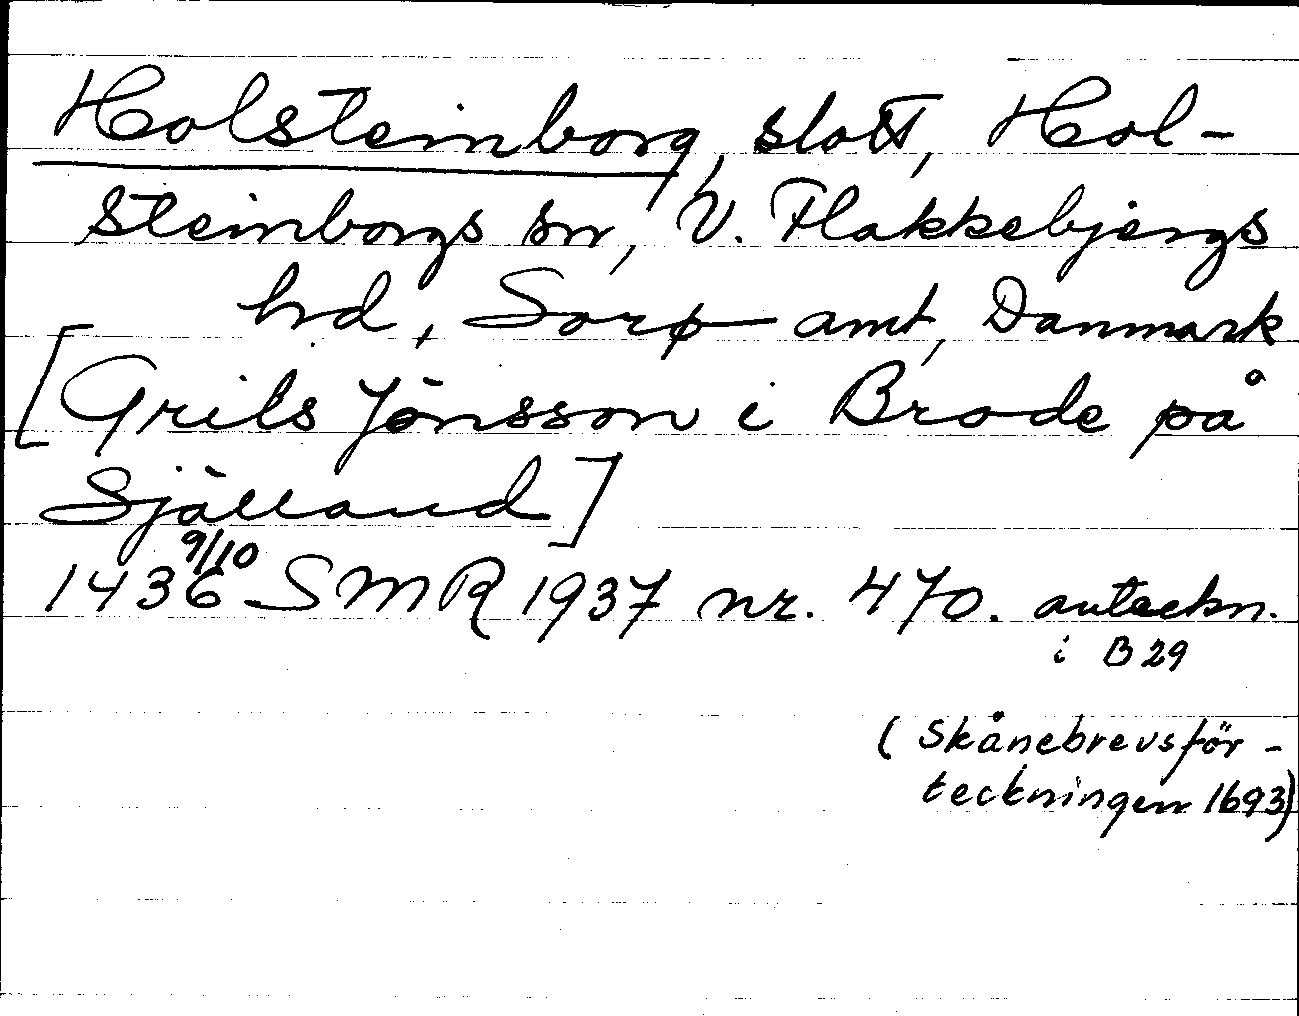 Holsteinborg, slott, Hol-
steinborgs sn, V. Flakkebjergs
hd, Sorø amt, Danmark
[Grils Jönsson i Brode på
Själland]
9/10
1436 SMR 1937 nr. 470. anteckn.
i B 29
(Skånebrevsför-
teckningen 1693)